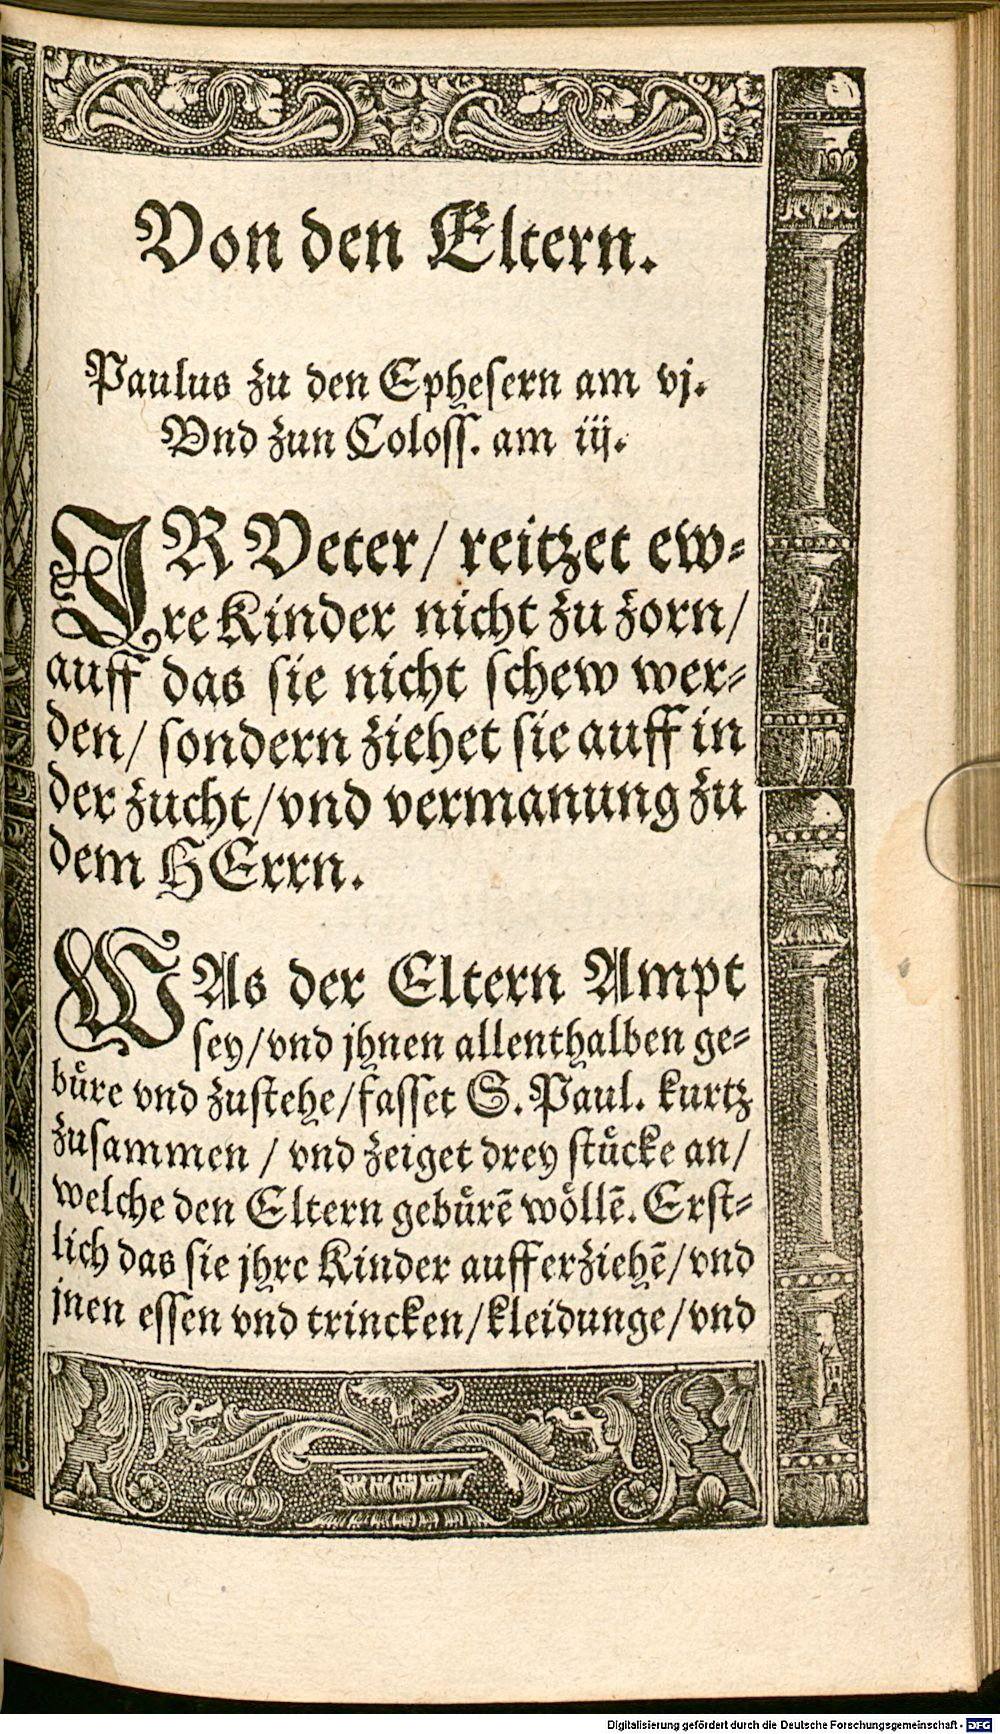 Von den Eltern.
Paulus zu den Ephesern am vj.
Vnd zun Coloss. am iij.
IR Veter / reitzet ew⸗
re Kinder nicht zu zorn /
auff das sie nicht schew wer⸗
den / sondern ziehet sie auff in
der zucht / vnd vermanung zu
dem HErrn.
WAs der Eltern Ampt
sey / vnd jhnen allenthalben ge⸗
buͤre vnd zustehe / fasset S. Paul. kurtz
zusammen / vnd zeiget drey stuͤcke an /
welche den Eltern gebuͤrē woͤllē. Erst⸗
lich das sie jhre Kinder aufferziehē / vnd
jnen essen vnd trincken / kleidunge / vnd
Digitalisierung gefördert durch die Deutsche Forschungsgemeinschaft - DFG